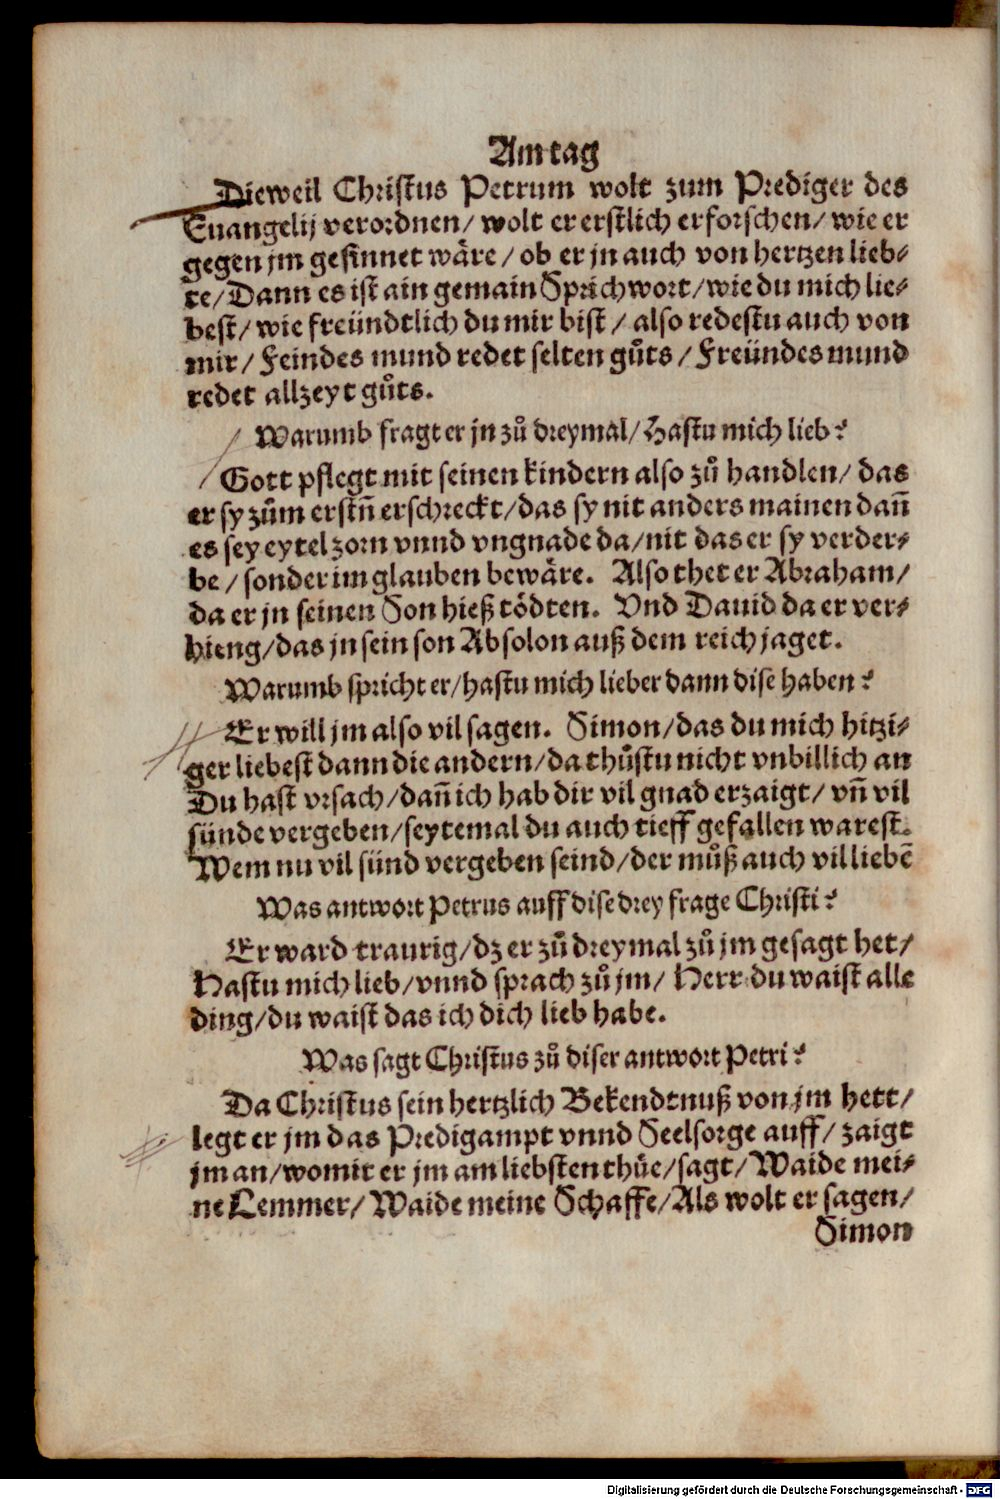 Am tag
Dieweil Christus Petrum wolt zum Prediger des
Euangelij verordnen/ wolt er erstlich erforschen/ wie er
gegen jm gesinnet wäre/ ob er jn auch von hertzen lieb-
te/ Dann es ist ain gemain Sprichwort/ wie du mich lie-
best/ wie freündtlich du mir bist/ also redestu auch von
mir/ Feindes mund redet selten gůts/ Freündes mund
redet allzeyt gůts.
Warumb fragt er jn zů dreymal/ Hastu mich lieb?
Gott pflegt mit seinen kindern also zů handlen/ das
er sy zům erstñ erschreckt/ das sy nit anders mainen dañ
es sey eytel zorn vnnd vngnade da/ nit das er sy verder-
be/ sonder im glauben bewäre. Also thet er Abraham/
da er jn seinen Son hieß tödten. Vnd Dauid da er ver-
hieng/ das jn sein son Absolon auß dem reich jaget.
Warumb spricht er/ hastu mich lieber dann dise haben?
Er will jm also vil sagen. Simon/ das du mich hitzi-
ger liebest dann die andern/ da thůstu nicht vnbillich an
Du hast vrsach/ dañ ich hab dir vil gnad erzaigt/ vñ vil
sünde vergeben/ seytemal du auch tieff gefallen warest.
Wem nu vil sünd vergeben seind/ der můß auch vil liebē
Was antwort Petrus auff dise drey frage Christi?
Er ward traurig/ dz er zů dreymal zů jm gesagt het/
Hastu mich lieb/ vnnd sprach zů jm/ Herr du waist alle
ding/ du waist das ich dich lieb habe.
Was sagt Christus zů diser antwort Petri?
Da Christus sein hertzlich Bekendtnuß von jm hett/
legt er jm das Predigampt vnnd Seelsorge auff/ zaigt
jm an/ womit er jm am liebsten thüe/ sagt/ Waide mei-
ne Lemmer/ Waide meine Schaffe/ Als wolt er sagen/
Simon
Digitalisierung gefördert durch die Deutsche Forschungsgemeinschaft - DFG